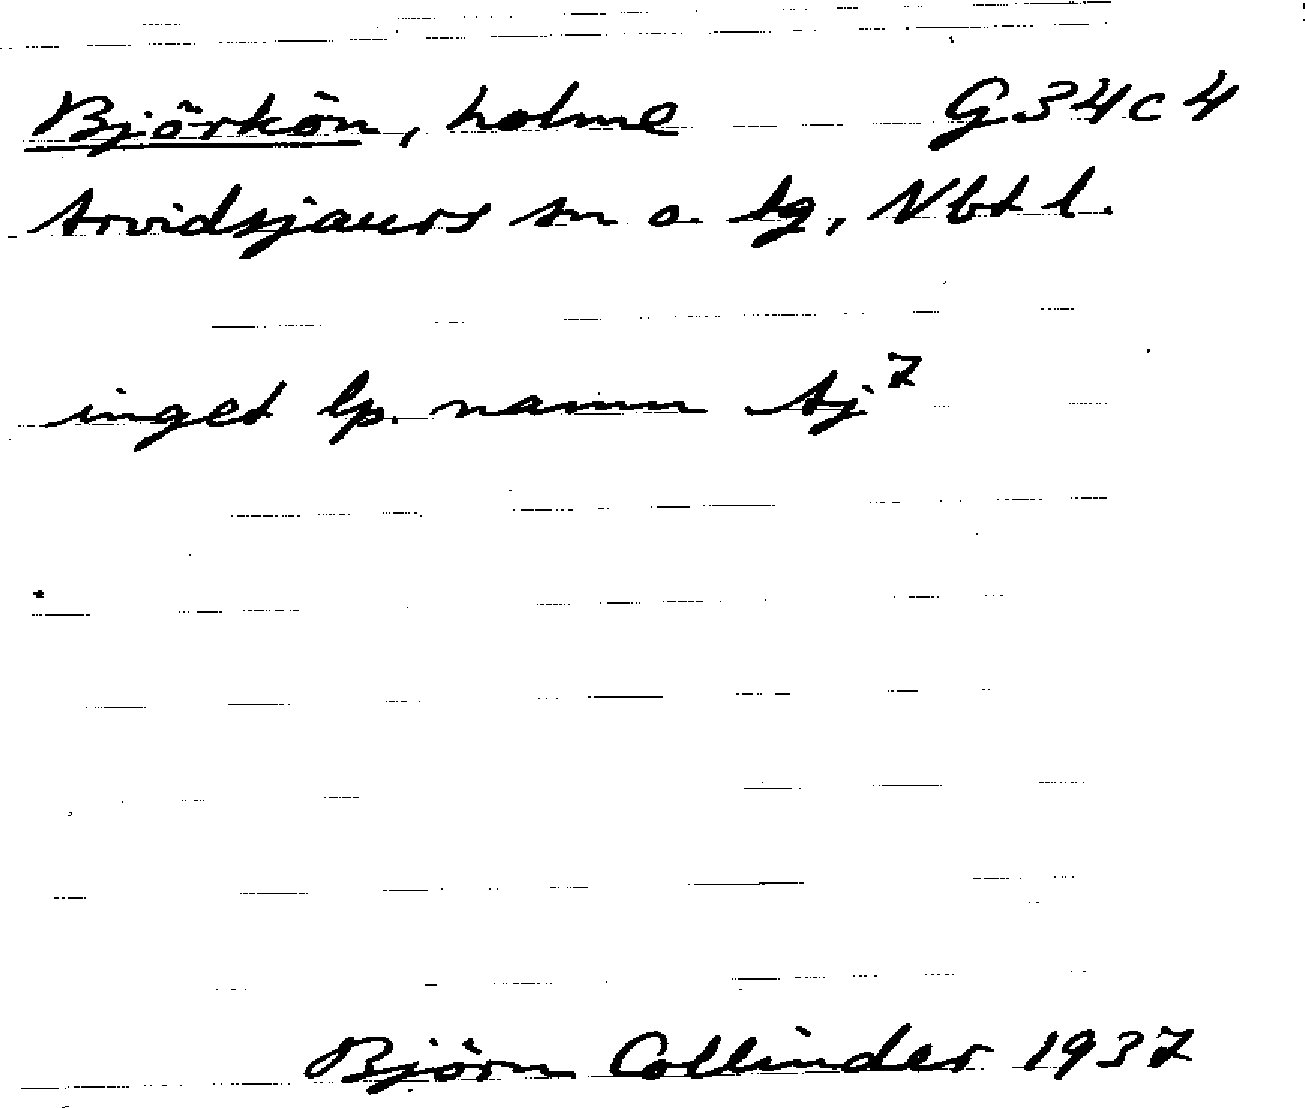 Björkön, holme G34c4
Arvidsjaurs sn o. lg, Nbt l.
inget lp. namn Aj⁷
Björn Collinder 1937